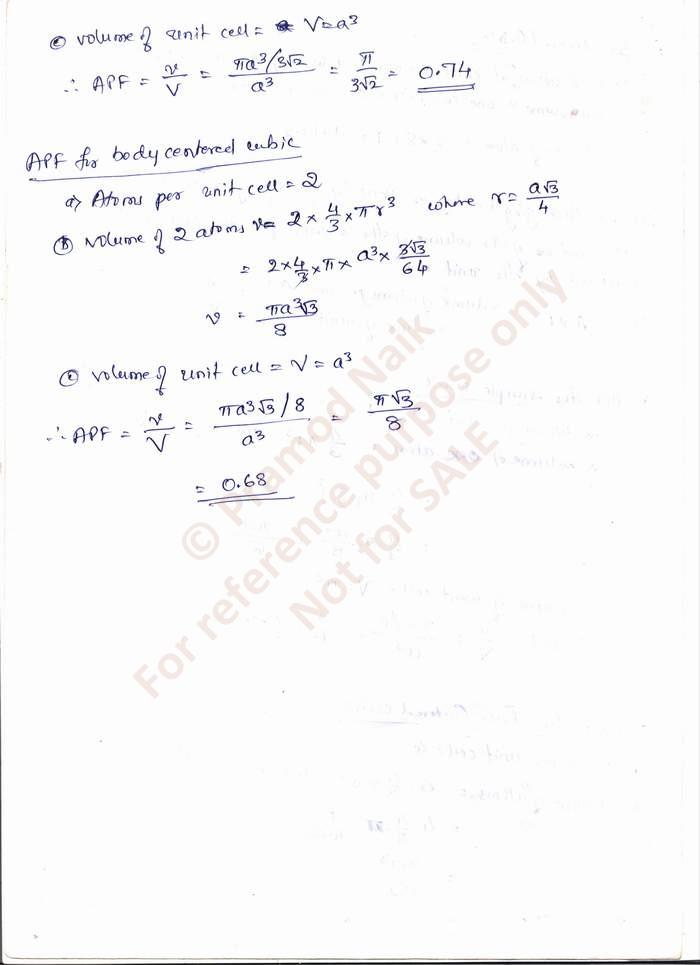 © volume of unit cell = V=a³
∴ APF = v/V = (πa³/3√2)/a³ = π/3√2 = 0.74
APF for body centered cubic
a) Atoms per unit cell = 2
(b) Volume of 2 atoms v= 2 × 4/3 × πr³ where r = a√3/4
= 2×4/3×π× a³× 3√3/64
v = πa³√3/8
(c) volume of unit cell = V = a³
∴ APF = v/V = (πa³√3/8)/a³ = π√3/8
= 0.68
© Pramod Naik
For reference purpose only
Not for SALE